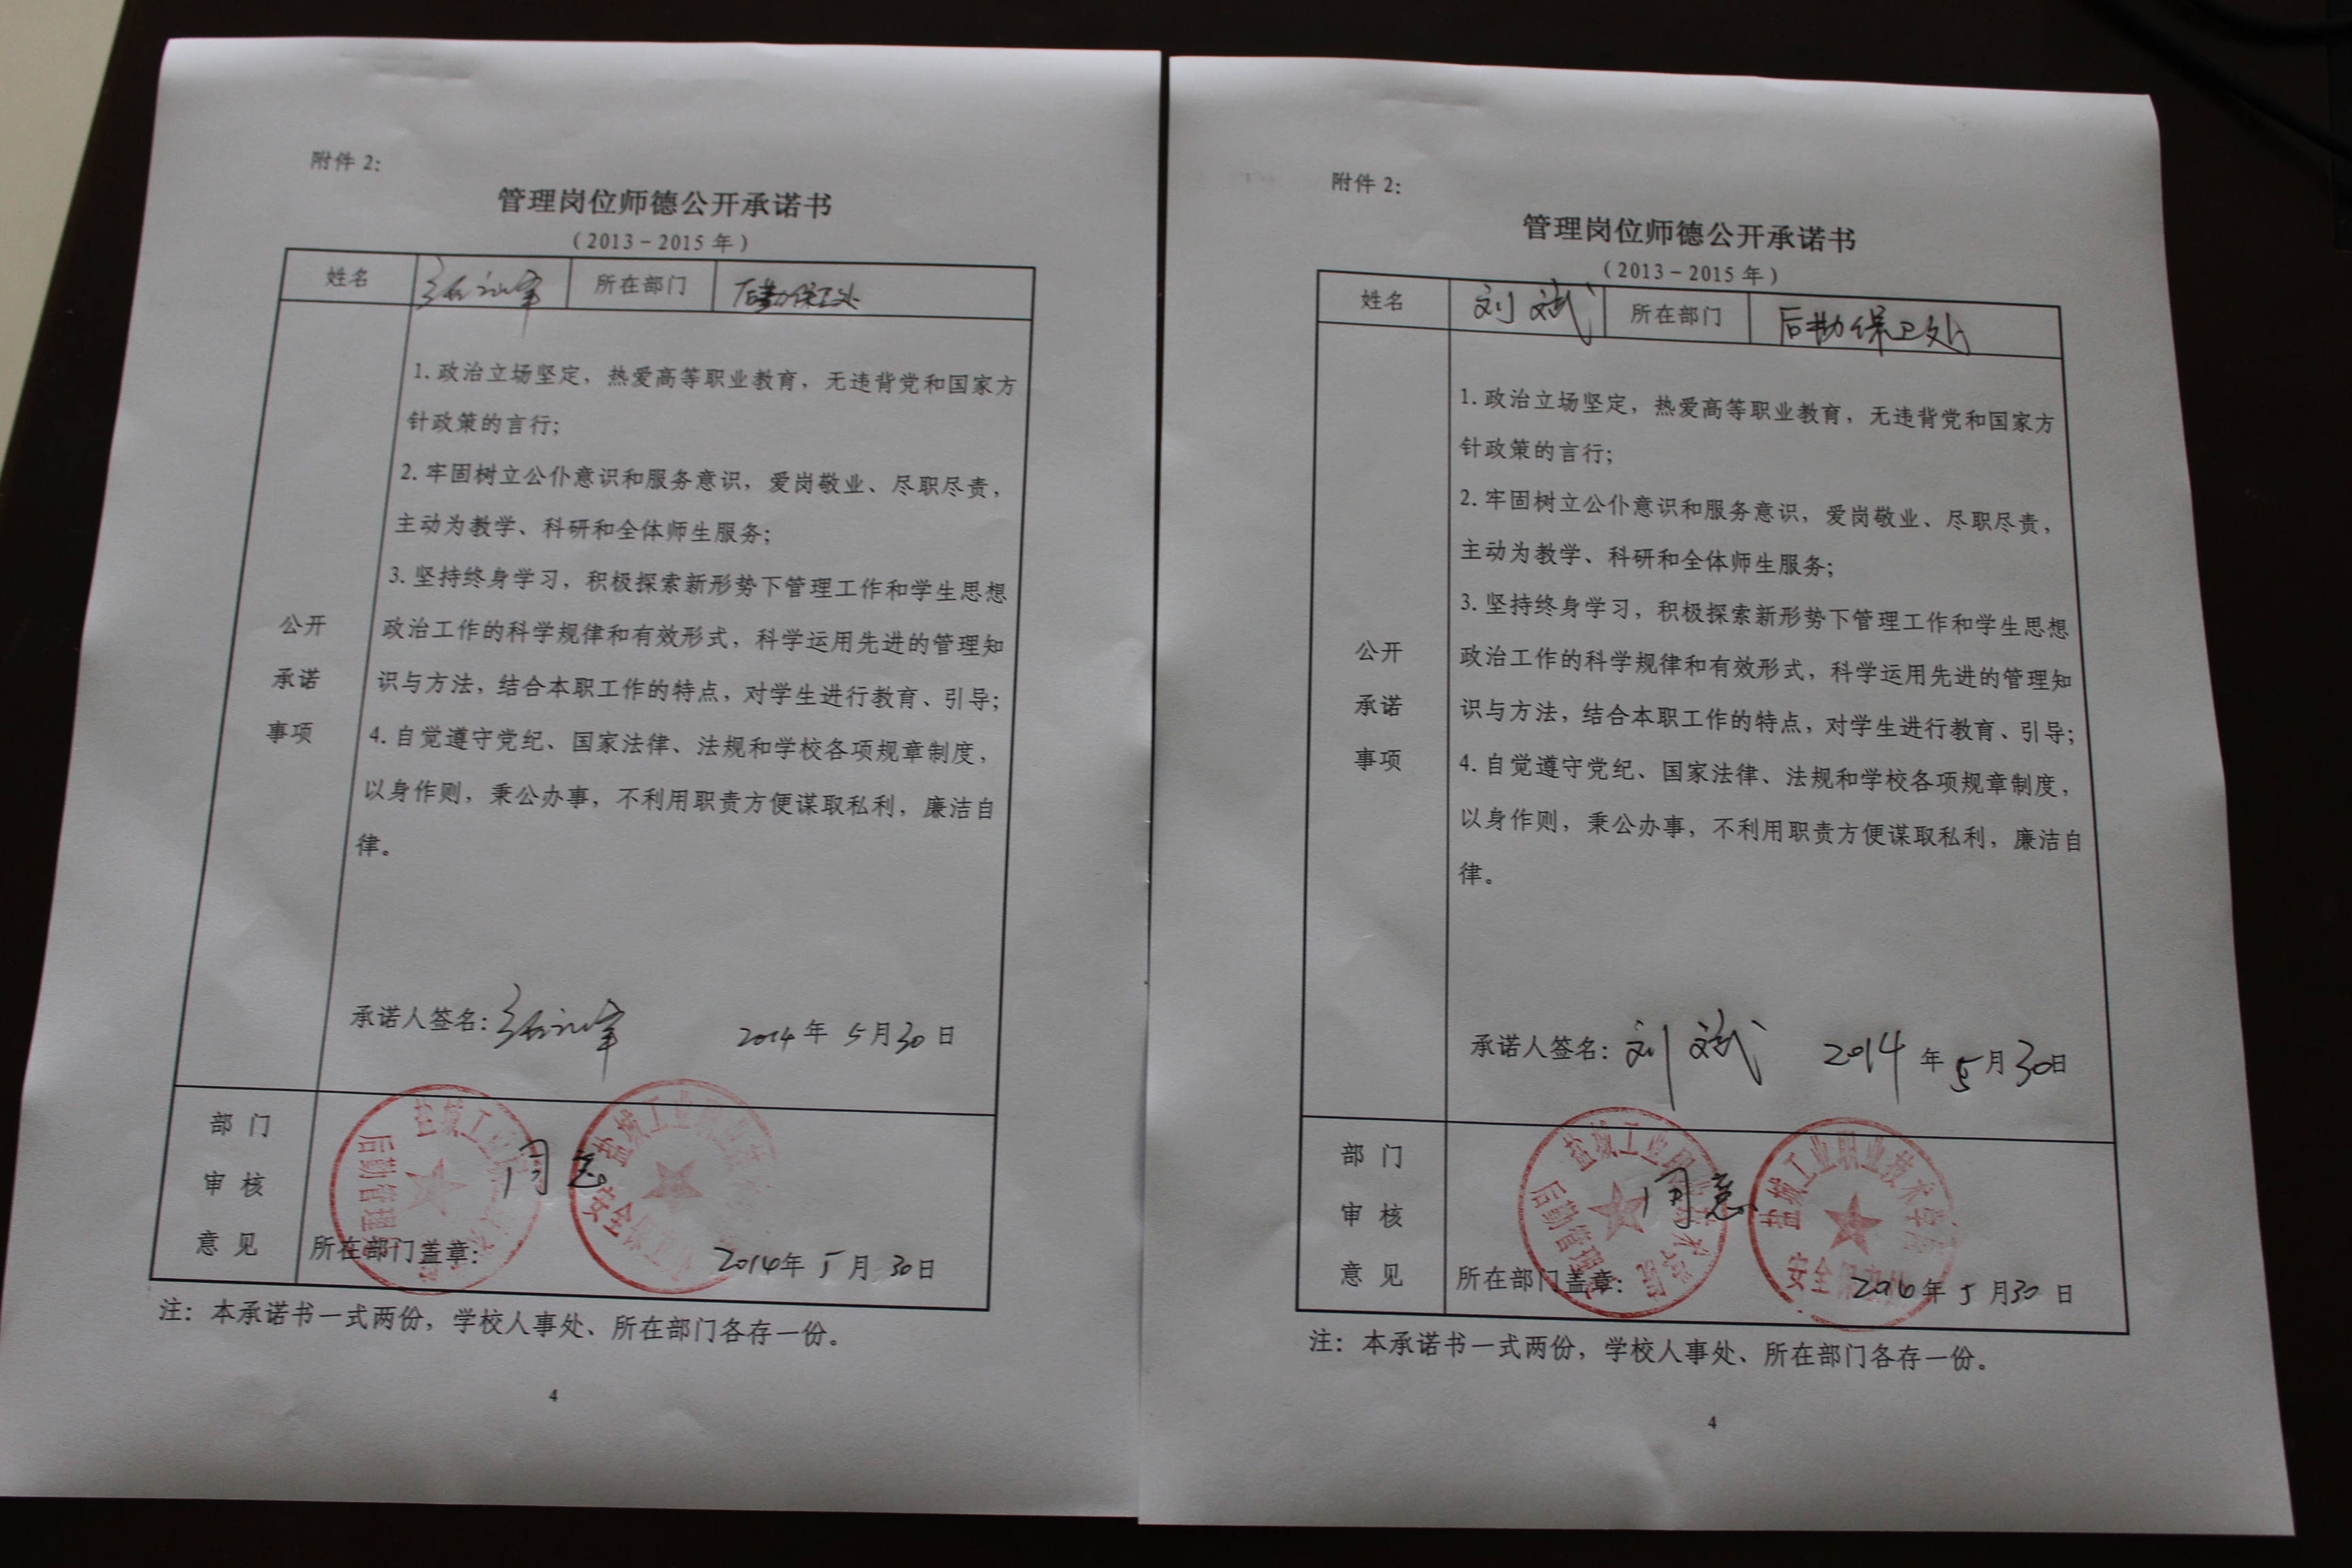 附件 2：
管理岗位师德公开承诺书
（2013－2015 年）
姓名 所在部门 后勤保卫处
1. 政治立场坚定，热爱高等职业教育，无违背党和国家方
针政策的言行；
2. 牢固树立公仆意识和服务意识，爱岗敬业、尽职尽责，
主动为教学、科研和全体师生服务；
3. 坚持终身学习，积极探索新形势下管理工作和学生思想
政治工作的科学规律和有效形式，科学运用先进的管理知
识与方法，结合本职工作的特点，对学生进行教育、引导；
4. 自觉遵守党纪、国家法律、法规和学校各项规章制度，
以身作则，秉公办事，不利用职责方便谋取私利，廉洁自
律。
公开
承诺
事项
承诺人签名： 2014 年 5 月 30 日
部 门
审 核
意 见
同意
所在部门盖章： 2014年 5 月 30 日
盐城工业
后勤管理
盐城工业职业技
安全保卫
注：本承诺书一式两份，学校人事处、所在部门各存一份。
4
附件 2：
管理岗位师德公开承诺书
（2013－2015 年）
姓名 刘斌 所在部门 后勤保卫处
1. 政治立场坚定，热爱高等职业教育，无违背党和国家方
针政策的言行；
2. 牢固树立公仆意识和服务意识，爱岗敬业、尽职尽责，
主动为教学、科研和全体师生服务；
3. 坚持终身学习，积极探索新形势下管理工作和学生思想
政治工作的科学规律和有效形式，科学运用先进的管理知
识与方法，结合本职工作的特点，对学生进行教育、引导；
4. 自觉遵守党纪、国家法律、法规和学校各项规章制度，
以身作则，秉公办事，不利用职责方便谋取私利，廉洁自
律。
公开
承诺
事项
承诺人签名：刘斌 2014 年 5 月 30日
部 门
审 核
意 见
同意
所在部门盖章： 年 5 月 30 日
盐城工业职业技术学院
后勤管理处
盐城工业职业技术学院
安全保卫处
注：本承诺书一式两份，学校人事处、所在部门各存一份。
4